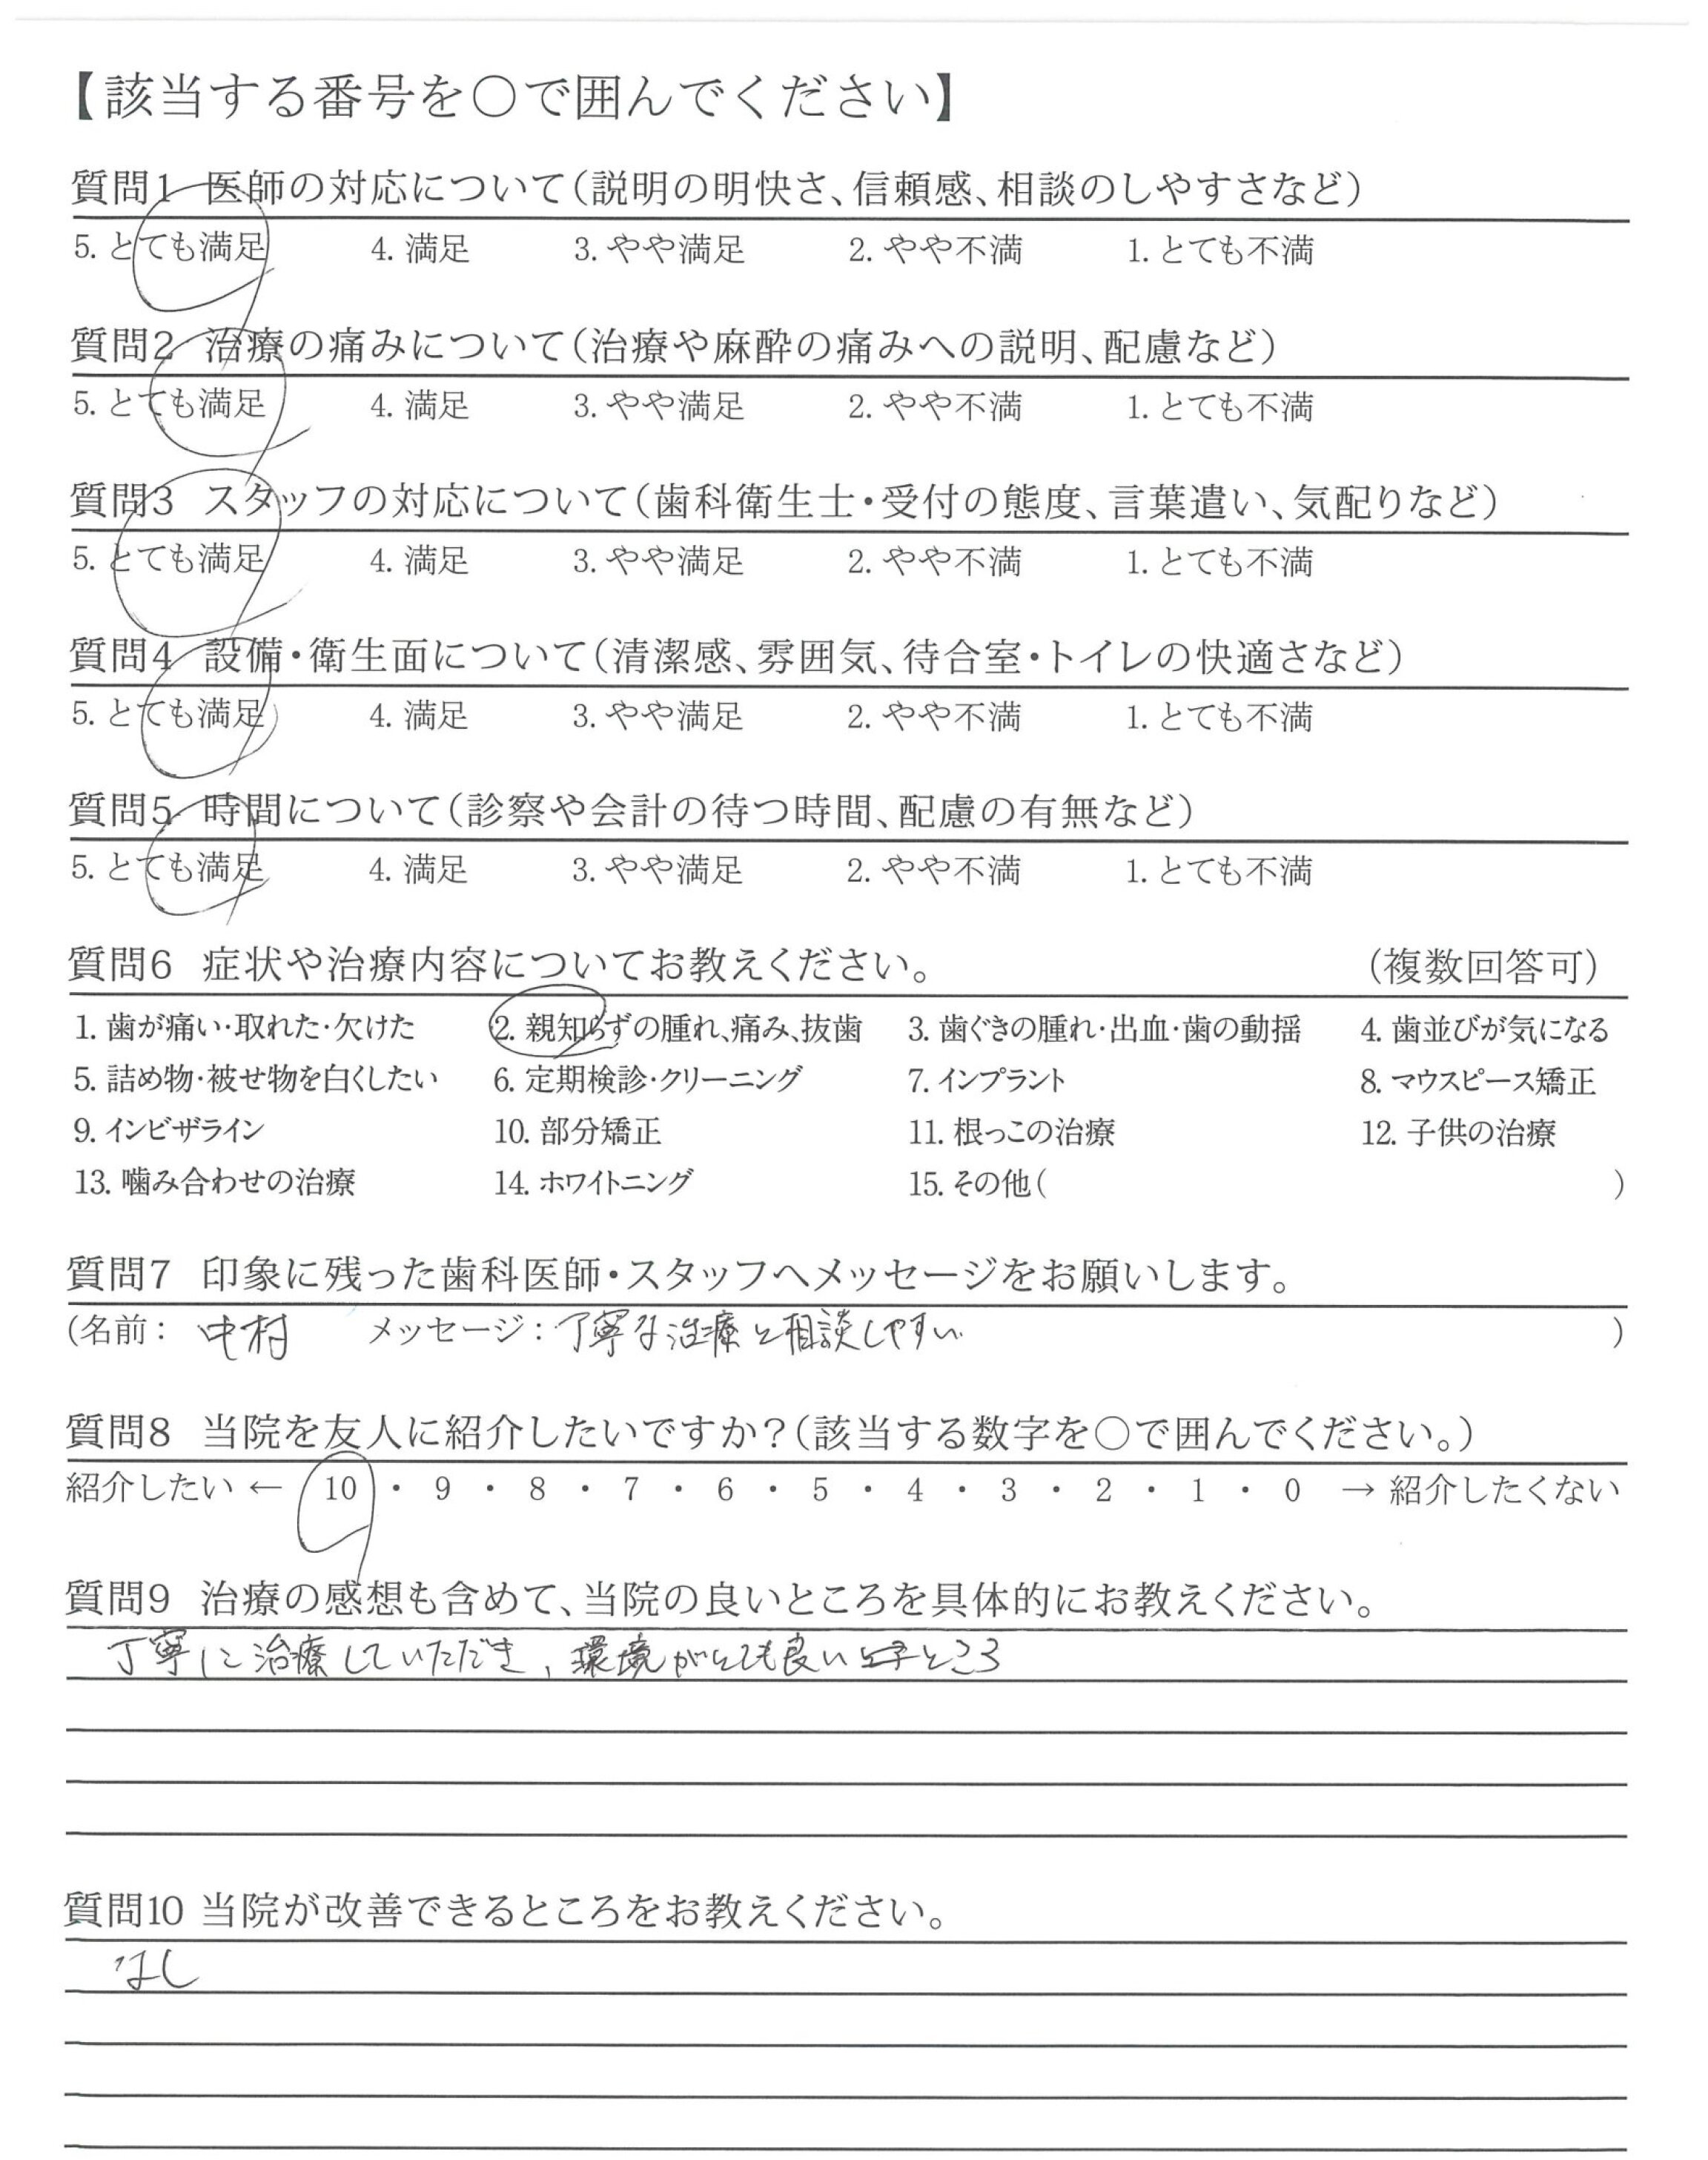 【該当する番号を○で囲んでください】
質問1 医師の対応について(説明の明快さ、信頼感、相談のしやすさなど)
5. とても満足 4. 満足 3. やや満足 2. やや不満 1. とても不満
質問2 治療の痛みについて(治療や麻酔の痛みへの説明、配慮など)
5. とても満足 4. 満足 3. やや満足 2. やや不満 1. とても不満
質問3 スタッフの対応について(歯科衛生士・受付の態度、言葉遣い、気配りなど)
5. とても満足 4. 満足 3. やや満足 2. やや不満 1. とても不満
質問4 設備・衛生面について(清潔感、雰囲気、待合室・トイレの快適さなど)
5. とても満足 4. 満足 3. やや満足 2. やや不満 1. とても不満
質問5 時間について(診察や会計の待つ時間、配慮の有無など)
5. とても満足 4. 満足 3. やや満足 2. やや不満 1. とても不満
質問6 症状や治療内容についてお教えください。 (複数回答可)
1. 歯が痛い・取れた・欠けた 2. 親知らずの腫れ、痛み、抜歯 3. 歯ぐきの腫れ・出血・歯の動揺 4. 歯並びが気になる
5. 詰め物・被せ物を白くしたい 6. 定期検診・クリーニング 7. インプラント 8. マウスピース矯正
9. インビザライン 10. 部分矯正 11. 根っこの治療 12. 子供の治療
13. 噛み合わせの治療 14. ホワイトニング 15. その他( )
質問7 印象に残った歯科医師・スタッフへメッセージをお願いします。
(名前: 中村 メッセージ: 丁寧な治療と相談しやすい )
質問8 当院を友人に紹介したいですか?(該当する数字を○で囲んでください。)
紹介したい ← 10 ・ 9 ・ 8 ・ 7 ・ 6 ・ 5 ・ 4 ・ 3 ・ 2 ・ 1 ・ 0 → 紹介したくない
質問9 治療の感想も含めて、当院の良いところを具体的にお教えください。
丁寧に治療していただき、環境がとても良いところ
質問10 当院が改善できるところをお教えください。
なし